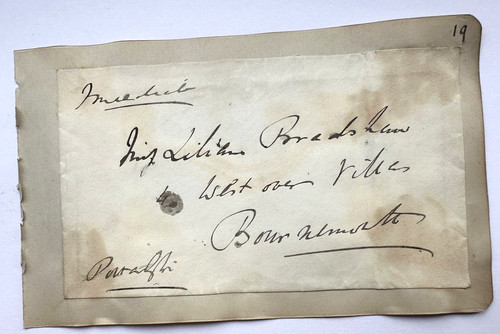 19
Immediate
Miss Lilian Bradshaw
4 West over Villas
Bournemouth